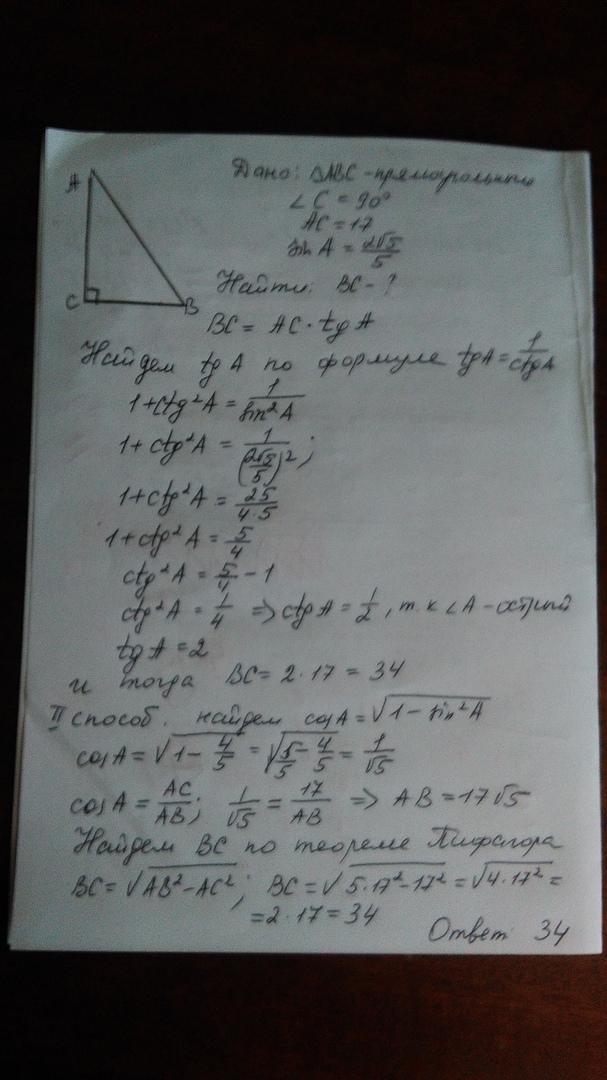 A
C
B
Дано: △ABC - прямоугольный
∠C = 90°
AC = 17
sin A = 2√5/5
Найти: BC - ?
BC = AC · tg A
Найдем tg A по формуле tgA = 1/ctgA
1 + ctg²A = 1/sin²A
1 + ctg²A = 1/(2√5/5)²;
1 + ctg²A = 25/4·5
1 + ctg²A = 5/4
ctg²A = 5/4 - 1
ctg²A = 1/4 => ctgA = 1/2, т.к ∠A - острый
tgA = 2
и тогда BC = 2 · 17 = 34
II способ. найдем cosA = √(1 - sin²A)
cosA = √(1 - 4/5) = √(5/5 - 4/5) = 1/√5
cosA = AC/AB; 1/√5 = 17/AB => AB = 17√5
Найдем BC по теореме Пифагора
BC = √(AB² - AC²); BC = √(5·17² - 17²) = √(4·17²) =
= 2·17 = 34
Ответ 34